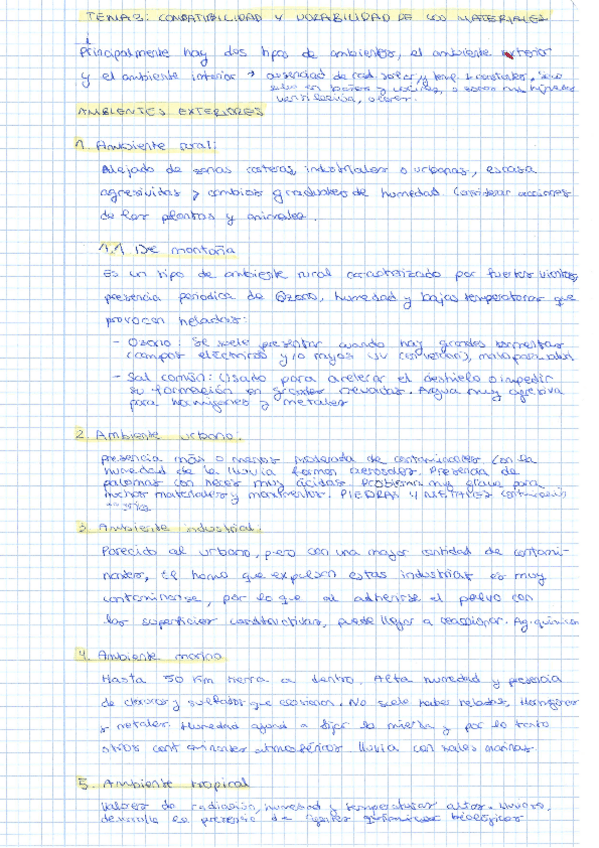 TEMA 3: COMPATIBILIDAD Y DURABILIDAD DE LOS MATERIALES
Principalmente hay dos tipos de ambientes, el ambiente exterior
y el ambiente interior → ausencia de rad. solar, y temp. constantes,
solo en baños y cocinas, o zonas muy húmedas
ventilación,
AMBIENTES EXTERIORES
1. Ambiente rural:
Alejado de zonas costeras, industriales o urbanas, escasa
agresividad y cambios graduales de humedad. Considerar acciones
de las plantas y animales.
1.1 De montaña
Es un tipo de ambiente rural caracterizado por fuertes vientos,
presencia periodica de Ozono, humedad y bajas temperaturas que
provocan heladas:
- Ozono: Se suele presentar cuando hay grandes tormentas
(campos eléctricos y/o rayos UV
- Sal común: Usado para acelerar el deshielo o impedir
su formación en grandes nevadas. Agua muy agresiva
para hormigones y metales
2. Ambiente urbano.
presencia más o menos moderada de contaminantes con la
humedad de la lluvia forman aerosoles. Presencia de
palomas con heces muy ácidas. Problema muy grave para
muchos materiales y monumentos. PIEDRAS Y METALES
3. Ambiente industrial.
Parecido al urbano, pero con una mayor cantidad de contami-
nantes, el humo que expulsan estas industrias es muy
contaminante, por lo que al adherirse el polvo con
las superficies constructivas, puede llegar a reaccionar. Ag. químicos
4. Ambiente marino
Hasta 50 Km tierra a dentro. Alta humedad y presencia
de cloruros y sulfatos que erosionan. No suele haber heladas, Hormigones
y metales. Humedad ayuda a fijar la niebla y por lo tanto
otros contaminantes atmosféricos. lluvia con sales marinas
5. Ambiente tropical
Valores de radiación, humedad y temperaturas altos. lluvioso,
desarrolla la presencia de agentes orgánicos biológicos